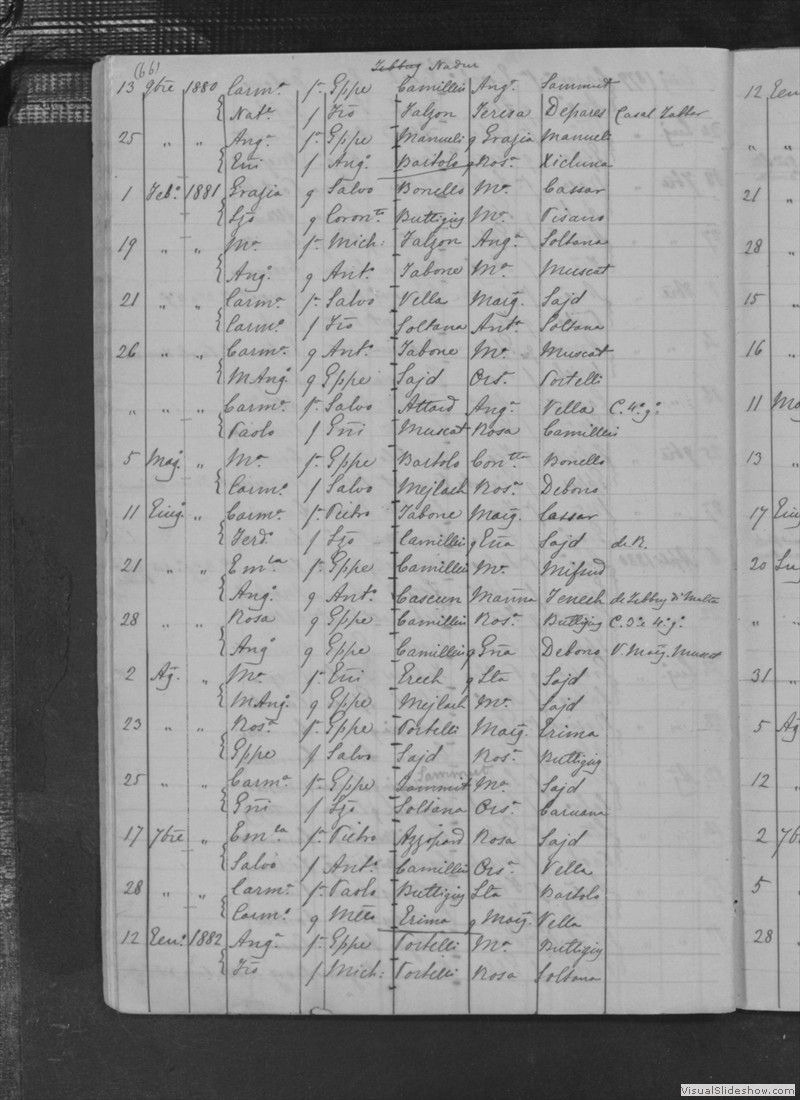 (66) Zebbug Nadur
13 9bre 1880 Carm.a f.a Gppe Camilleri Ang.a Sammut
Nat.e f Fćo Falzon Teresa Depares Casal Zabbar
25 " " Ang.a f.a Gppe Manueli q Grazia Manueli
Eñi f Ang.o Bartolo q Ros.a Xicluna
1 Feb.o 1881 Grazia q Salvo Bonello M.a Cassar
Lzo q Coron.to Buttigieg M.a Pisano
19 " " M.a f.a Mich: Falzon Ang.a Soltana
Ang.o q Ant.o Tabone M.a Muscat
21 " " Carm.a f.a Salvo Vella Marg. Sajd
Carm.o f Fćo Soltana Ant.a Soltana
26 " " Carm.a q Ant.o Tabone M.a Muscat
MAng.o q Gppe Sajd Ors.a Portelli
" " " Carm.a f.a Salvo Attard Ang.a Vella C. 4.o g.o
Paolo f Gñi Muscat Rosa Camilleri
5 Mag. " M.a f.a Gppe Bartolo Con.tta Bonello
Carm.o f Salvo Mejlach Ros.a Debono
11 Eing. " Carm.a f.a Pietro Tabone Marg. Cassar
Ferd.o f Lzo Camilleri q Eña Sajd de R.
21 " " Em.la f.a Gppe Camilleri M.a Mifsud
Ang.o q Ant.o Cascun Marina Fenech de Zebbug di Malta
28 " " Rosa q Gppe Camilleri Ros.a Buttigieg C. 3.o e 4.o g.o
Ang.o q Gppe Camilleri q Gña Debono V. Marg. Muscat
2 Ag. " M.a f.a Eñi Erech q Sta Sajd
MAng.o q Gppe Mejlach M.a Sajd
23 " " Ros.a f.a Gppe Portelli Marg. Grima
Gppe f Salvo Sajd Ros.a Buttigieg
25 " " Carm.a f.a Gppe Sammut M.a Sajd
Gñi f Lzo Soltana Ors.a Caruana
17 7bre " Em.la f.a Pietro Azzopard Rosa Sajd
Salvo f Ant.o Camilleri Ors.a Vella
28 " " Carm.a f.a Paolo Buttigieg Sta Bartolo
Carm.o q Mtteo Grima q Marg. Vella
12 Een.o 1882 Ang.a f.a Gppe Portelli M.a Buttigieg
Fćo f Mich: Portelli Rosa Soltana
12 Een
" "
21 "
28 "
15 "
16 "
11 Ma
13 "
17 Ein
20 Lu
" "
31 "
5 Ag
12 "
2 7b
5 "
28 "
VisualSlideshow.com